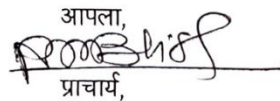 आपला,
प्राचार्य,